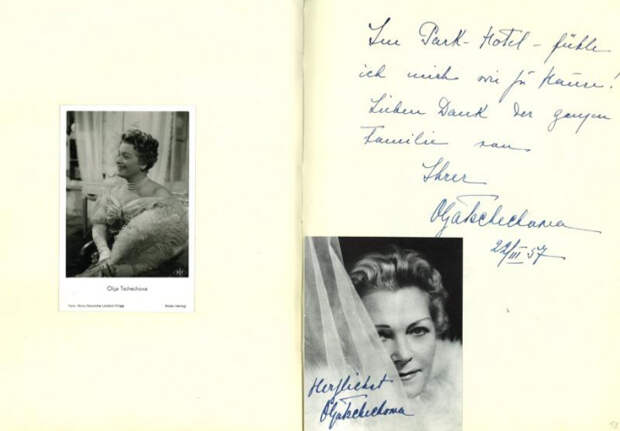 Olga Tschechowa
Im Park-Hotel - fühle
ich mich wie zu Hause!
Lieben Dank der ganzen
Familie von
Ihrer
Olga Tschechowa
22/III 57
Herzlichst
Olga Tschechowa